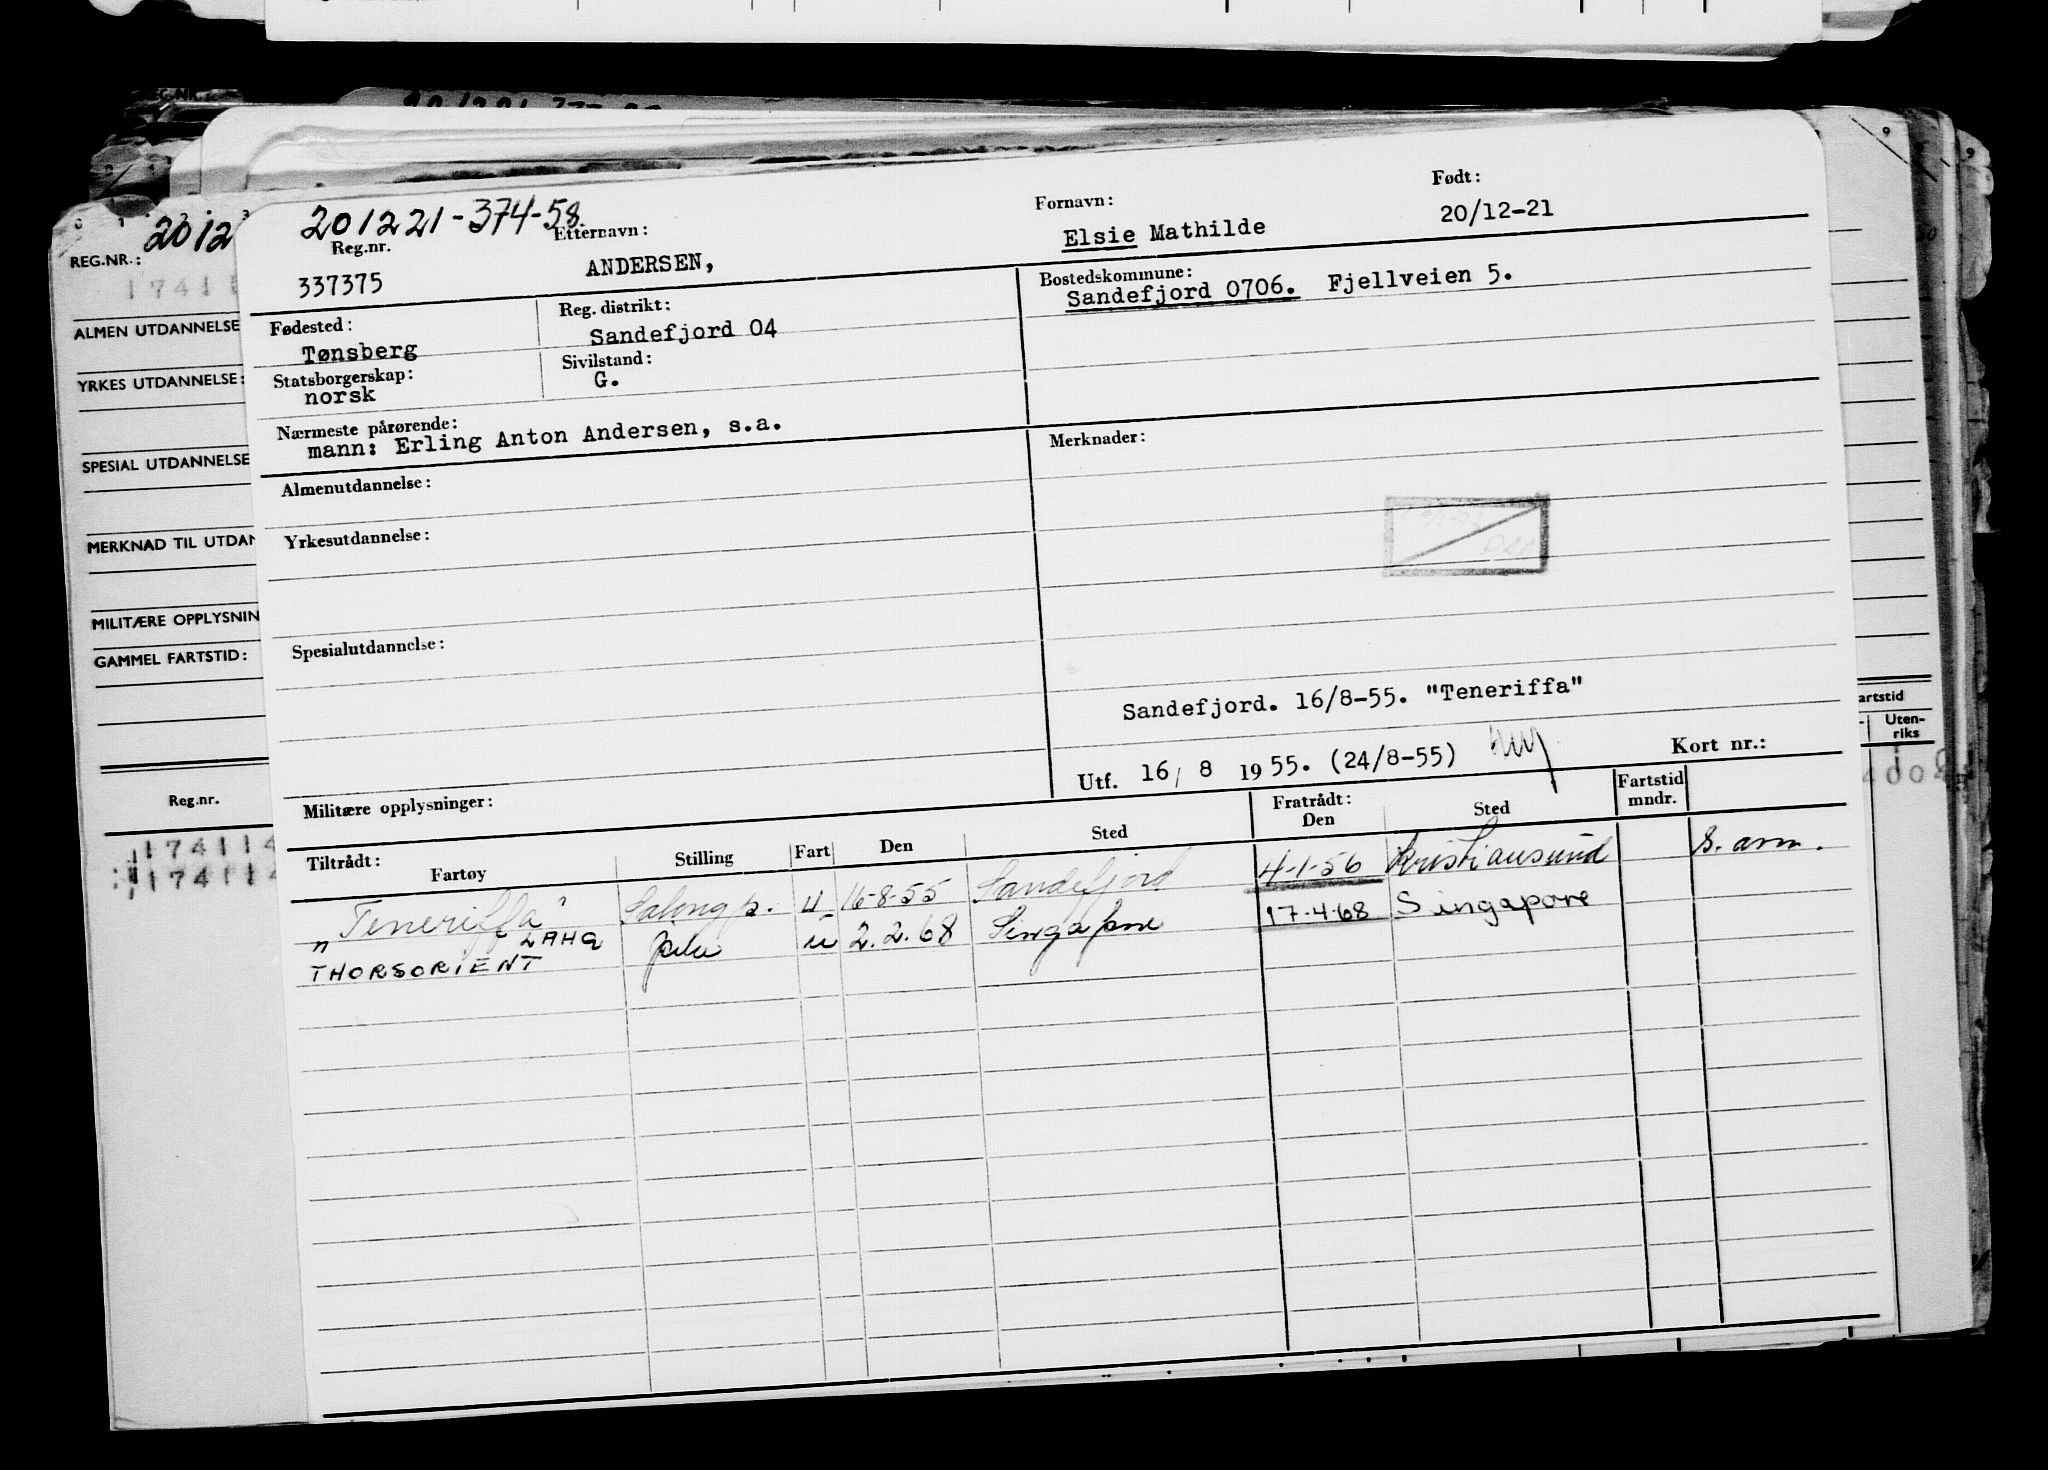 REG.NR.: 2012
1741
ALMEN UTDANNELSE
YRKES UTDANNELSE:
SPECIAL UTDANNELSE
MERKNAD TIL UTDAN
MILITÆRE OPPLYSNIN
GAMMEL FARTSTID:
Reg.nr.
174114
174114
201221-374-58.
Reg.nr. Etternavn: Fornavn: Født:
337375 ANDERSEN, Elsie Mathilde 20/12-21
Fødested: Reg. distrikt: Bostedskommune:
Tønsberg Sandefjord 04 Sandefjord 0706. Fjellveien 5.
Statsborgerskap: Sivilstand:
norsk G.
Nærmeste pårørende:
mann: Erling Anton Andersen, s.a.
Merknader:
Almenutdannelse:
Yrkesutdannelse:
Spesialutdannelse:
Sandefjord. 16/8-55. "Teneriffa"
Utf. 16/ 8 1955. (24/8-55) Kort nr.:
Militære opplysninger:
Tiltrådt: Fartøy Stilling Fart Den Sted Fratrådt: Den Sted Fartstid mndr.
"Teneriffa" Salongp. u 16-8-55 Sandefjord 4-1-56 Kristiansund s. arm.
THORSORIENT LAHQ u 2.2.68 Singapore 17-4-68 Singapore
artstid
Uten-
riks
9
9